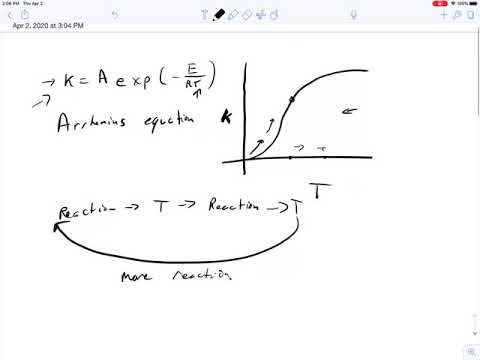 2:08 PM Thu Apr 2
100%
Apr 2, 2020 at 3:04 PM
→ K = A exp (- E/RT)
Arrhenius equation
K
→ T
T
Reaction → T → Reaction → T
more reaction